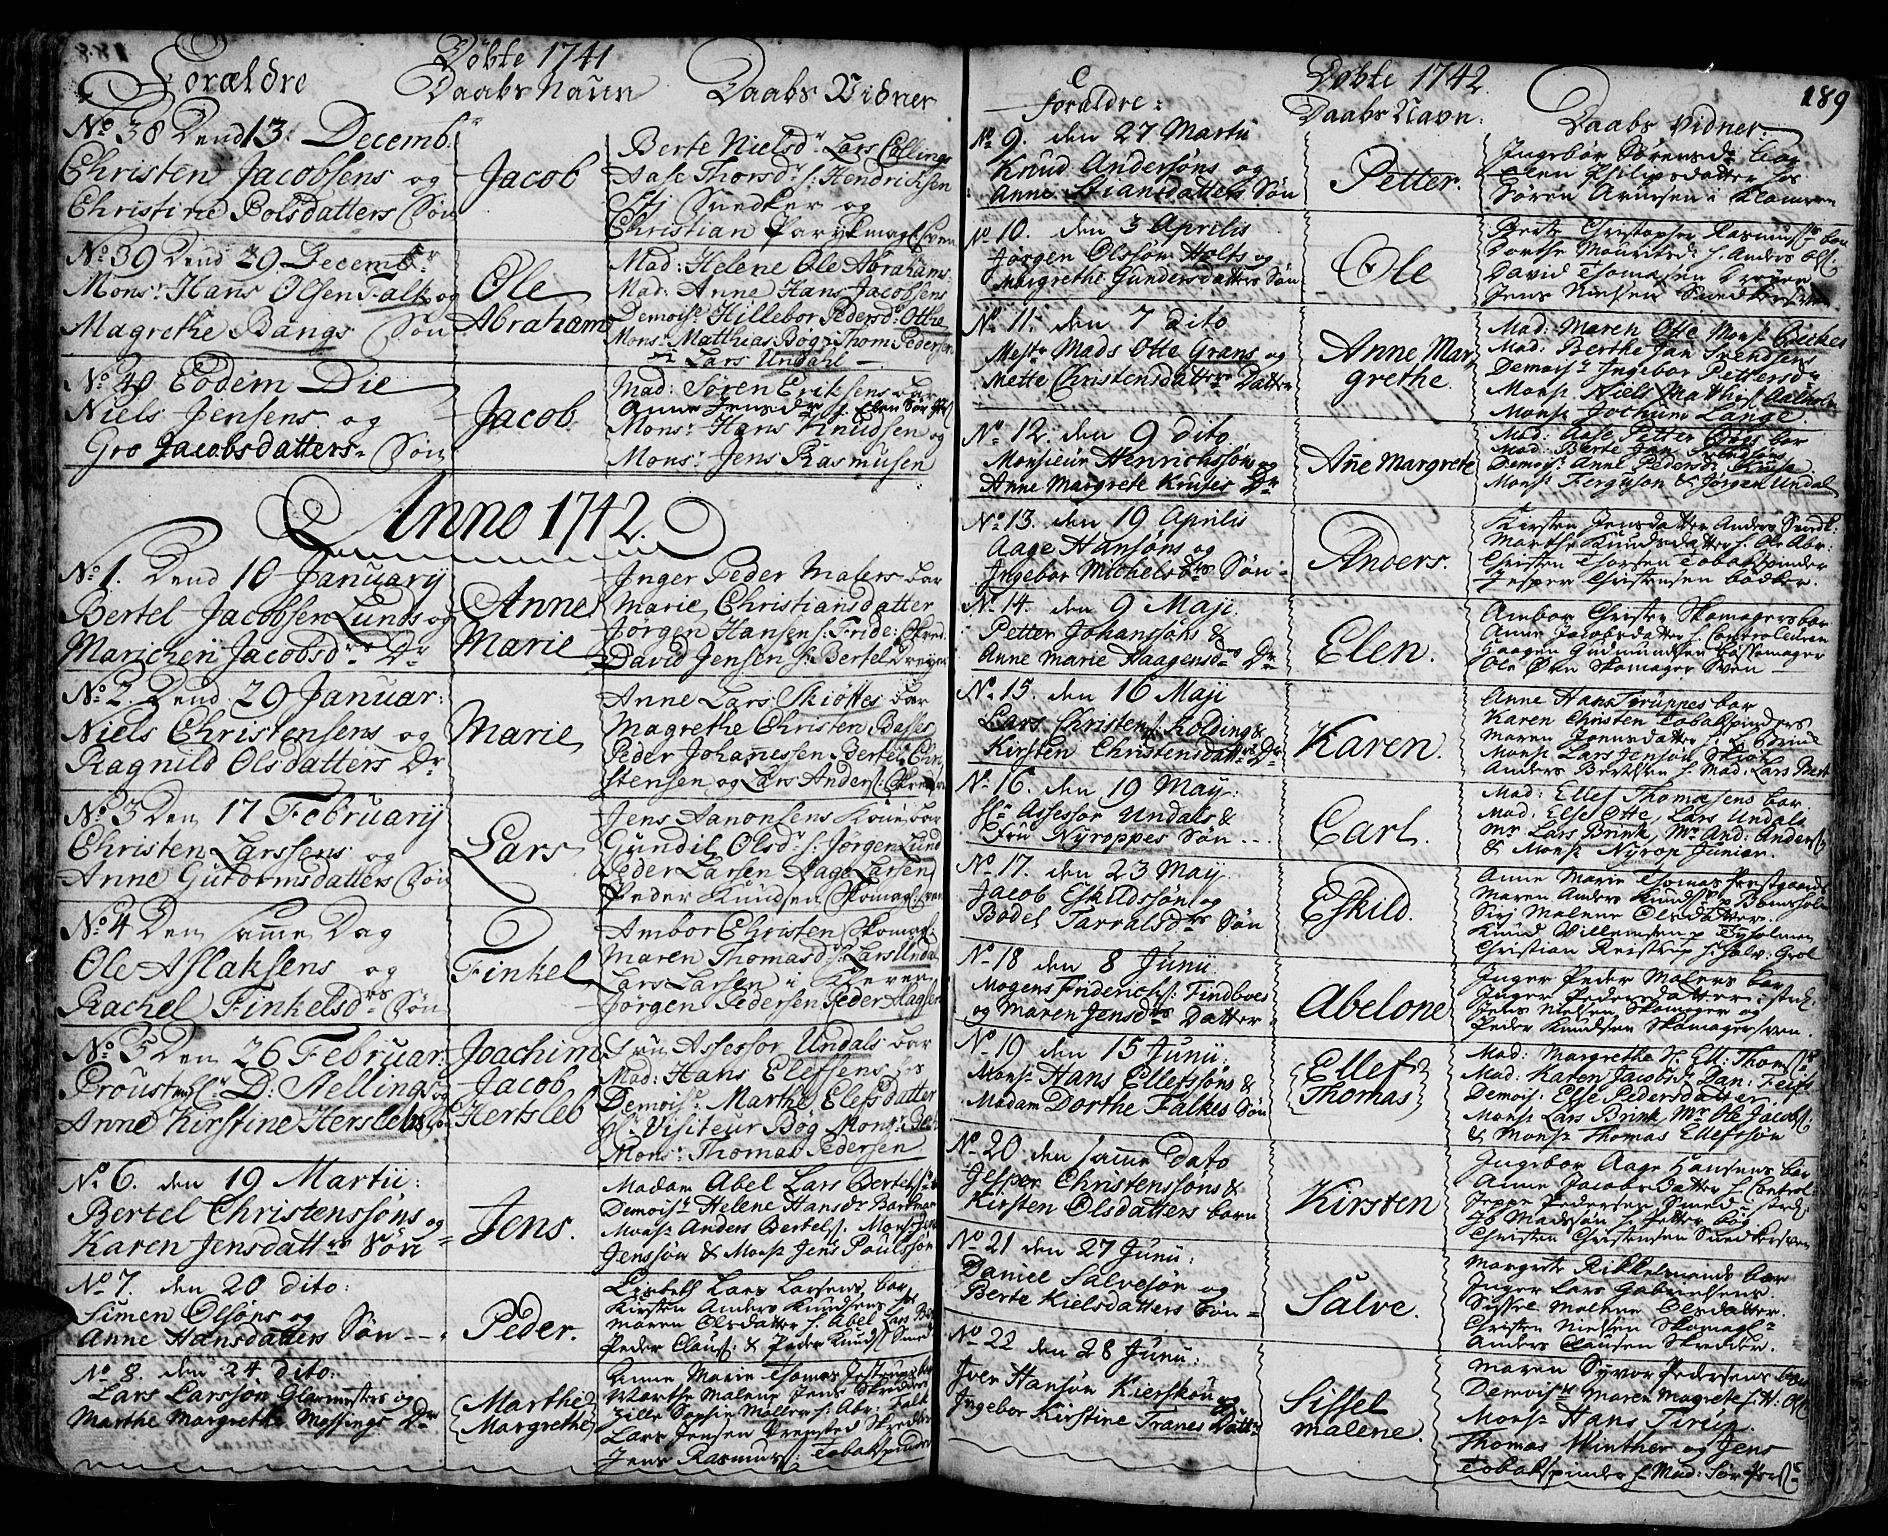 Døbte 1741
Forældre Daabs Naun Daabs Vidner
No 38 Dend 13 Decemb.
Christen Jacobsens og
Christine Polsdatters Søn
Jacob
Berte Nielsd: Lars Collings
Aase Thorsd: f: Hendrichsen
Snedker og
Christian Parykmag: Sven
No 39 Dend 29 Decembr
Monsr Hans Olsen Falk og
Magrethe Bangs Søn
Ole
Abraham
Mad: Helene Ole Abrahams
Mad: Anne Hans Jacobsens
Demois: Hillebor Pedersd: Otthe
Mons: Matthias Bøg, Thom Pedersen
Lars Undahl
No 40 Eodem Die
Niels Jensens og
Gro Jacobsdatters Søn
Jacob
Mad: Søren Eriksens bar
Anne Jensd
Monsr Hans Knudsen og
Monsr Jens Rasmusen
Anno 1742.
No 1. Dend 10 January
Bertel Jacobsen Lunds og
Marichen Jacobsdrs Dr
Anne
Marie
Inger Peder Malers bar
Marie Christiansdatter
Jørgen Hansen f: Fride:
David Jensen f: Bertel Dreyer
No 2. Dend 29 Januar:
Niels Christensens og
Ragnild Olsdatters Dr
Marie
Anne Lars Skiøttes bar
Magrethe Christen Basses
Peder Johannessen Bertel Chri
stensen og Lars Anders:
No 3 Den 17 February
Christen Larssens og
Anne Gutormsdatters Søn
Lars
Jens Aanonsens Kone bar
Gundil Olsd: f: Jørgen Lund
Peder Larsen Aage Larsen
Peder Knudsen Skomag: sven
No 4 Den samme Dag
Ole Aslaksens og
Rachel Finkelsdrs Søn
Finkel
Ambor Christen Skomag:
Maren Thomasd: f: Lars Undal
Lars Larsen i Kleven
Jørgen Pedersen Peder Aagsen
No 5 Den 26 Februar:
Proust D: Stellings og
Anne Kirstine Herslebs Søn
Joachim
Jacob
Hertsleb
Fru Assessor Undals bar
Mad: Hans Elefsens
Demois: Marthe Elefsdatter
Hr Visiteur Bøg Monsr
Mons: Thomas Pedersen
No 6. den 19 Martii:
Bertel Christenssøns og
Karen Jensdattrs Søn
Jens.
Madam Abel Lars Bertels
Demoisl Helene Hansdr
Monsr Anders Bertels:
Jenssøn & Monsr Jens Poulssøn
No 7. den 20 dito:
Simen Olsøns og
Anne Hansdatters Søn
Peder.
Lisbeth Lars Larsens bar
Kirsten Anders Knudsens
Maren Olsdatter f: Abel Lars
Peder Claus: & Peder Knuds
No 8. den 24. dito:
Lars Larssøn Glarmesters og
Marthe Margrethe Massings Dr
Marthe
Margrethe
Anne Marie Thomas
Marthe Malene Jens
Zille Sophie Møller f: Abr: Falk
Lars Jensen
Jens Rasmus: Tobakspinder
189
Døbte 1742
Forældre: Daabs Navn: Daabs Vidner.
No 9. den 27 Martii
Knud Andersøns og
Anne Stiansdatters Søn
Petter.
Ingebor Sørensdr bar
Elen Philipsdatter hos
Søren
No 10. den 3 Aprilis
Jørgen Olssøn Holts og
Margrethe Gundersdatters Søn
Ole
Berte Christopher Rasmuss: bar
Dorthe Mouritsd: f. Anders Ols
David Thomassen
Jens Nielsen Snedkersven
No 11. den 7 dito
Mestr Mads Otte Grans og
Mette Christensdatters Datter
Anne Mar
grethe.
Mad: Maren Otte Monsr
Mad: Berthe Jan Svendsens
Demoisl Ingebor Pettersdr
Monsr Niels Mathis:
Monsr Jochum Lange.
No 12. den 9 dito
Monsieur Henrichssøns og
Anne Margrete Kruses Dr
Anne Margrete
Mad: Aase Petter Bøgs bar
Mad: Berte Jan Svendsens
Demois: Anne Pedersdr
Monsr Ferguson & Jørgen Undal
No 13. den 19 Aprilis
Aage Hansøns og
Ingebor Michelsdrs Søn
Anders.
Kirsten Jensdatter Anders Snedk:
Marthe Knudsdatter f. Ole Abr:
Christen Thorsen Tobakspinder
Jesper Christensen bødker.
No 14. den 9 Maji
Petter Johanssøns &
Anne Marie Haagensdrs Dr
Elen.
Ambor Christen Skomagers bar
Anne Jacobsdatter f. Controleuren
Haagen Gudmundsen
Ole Skomager Sven
No 15 den 16 Maji
Lars Christens: Kolding &
Kirsten Christensdatters Dr
Karen.
Anne Hans Tiruppes bar
Karen Christen Tobakspinders
Maren Jonnsdatter f.
Monsr Lars Jensøn
Anders Bertelsen f. Mad: Lars Bert
No 16. den 19 Maij:
Hr Assessor Undals &
Fru Nyroppes Søn
Carl.
Mad: Ellef Thomæsens bar.
Mad: Else Otte, Lars Undals
Mr Lars Brink, Mr And: Anders
& Monsr Nyrop Junior.
No 17. den 23 Maij.
Jacob Eskildssøn og
Bodel Tarralsdrs Søn
Eskild.
Anne Marie Thomas Prestgaards
Maren Anders Knuds:
Siri Malene Olsdatter.
Knud Willemsen p Tyholmen
Christian Reistrup f. Salv: Grol
No 18 den 8 Junii
Mogens Friderichs: Findboes
og Maren Jensdrs Datter
Abelone
Inger Peder Malers bar
Inger Pedersdatter
Jens Nielsen Skomager og
Peder Knudsen Skomagersven.
No 19 den 15 Junii:
Monsr Hans Ellefssøns &
Madam Dorthe Falkes Søn
Ellef
Thomas
Mad: Margrethe Sl. Ell: Thoms:
Mad: Karen Jacobs: Dan:
Demois: Else Pedersdatter
Monsr Lars Brink, Mr Ole Jacobs
& Monsr Thomas Ellefssøn
No 20 den samme Dato
Jesper Christenssøns &
Kirsten Olsdatters barn
Kirsten
Ingebor Aage Hansens bar
Anne Jacobsdatter f. Control
Jeppe Pedersen Smed
Ib Madssøn f. Petter Bøg
Christen Christensen Snedkersven
No 21 den 27 Junii:
Daniel Salvesøn og
Berte Kielsdatters Søn
Salve.
Margrete Rikkelmands bar
Inger Lars Gabrielsens
Sissel Malene Olsdatter.
Christen Nielsen Skomag:
Anders Clausen Skredder.
No 22 den 28 Junii:
Iver Hansøn Kierskou og
Ingebor Kirstine Tranes Datt:
Sissel
Malene.
Maren Syver Pedersens bar
Demois: Maren Magrete f. H: Ols
Monsr Hans Tirup
Thomas Winther og Jens
Tobakspinder f. Mad: Sør: